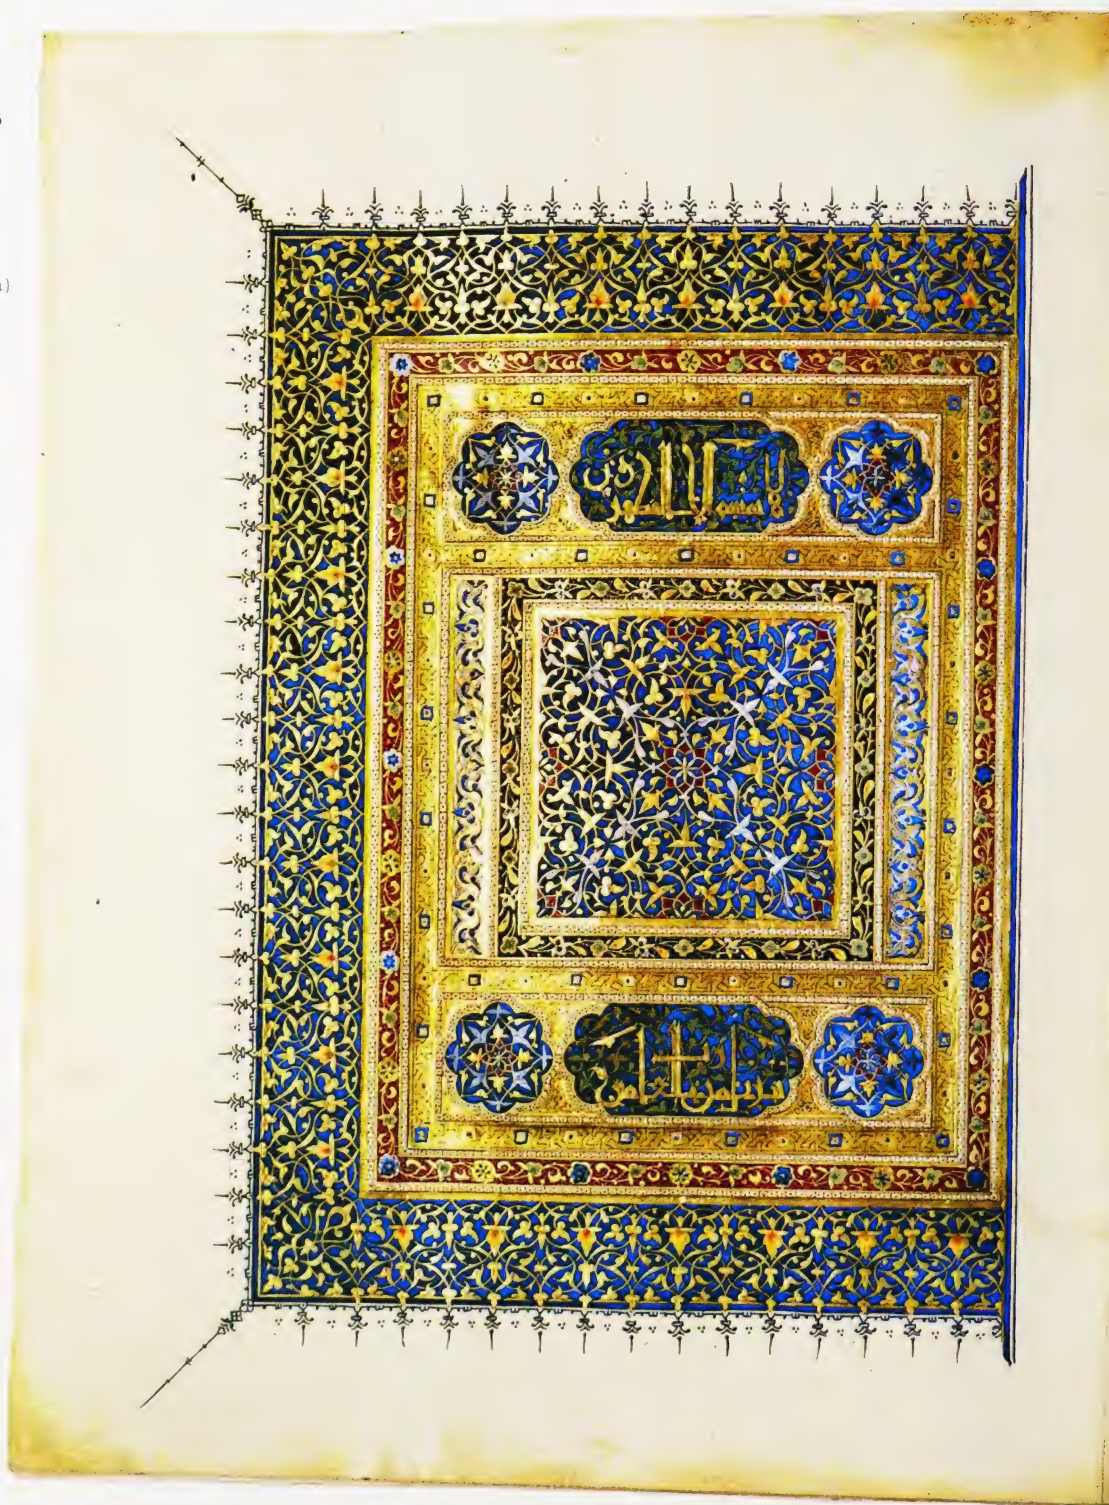 لا يمسه الا المطهرون
تنزيل من رب العلمين